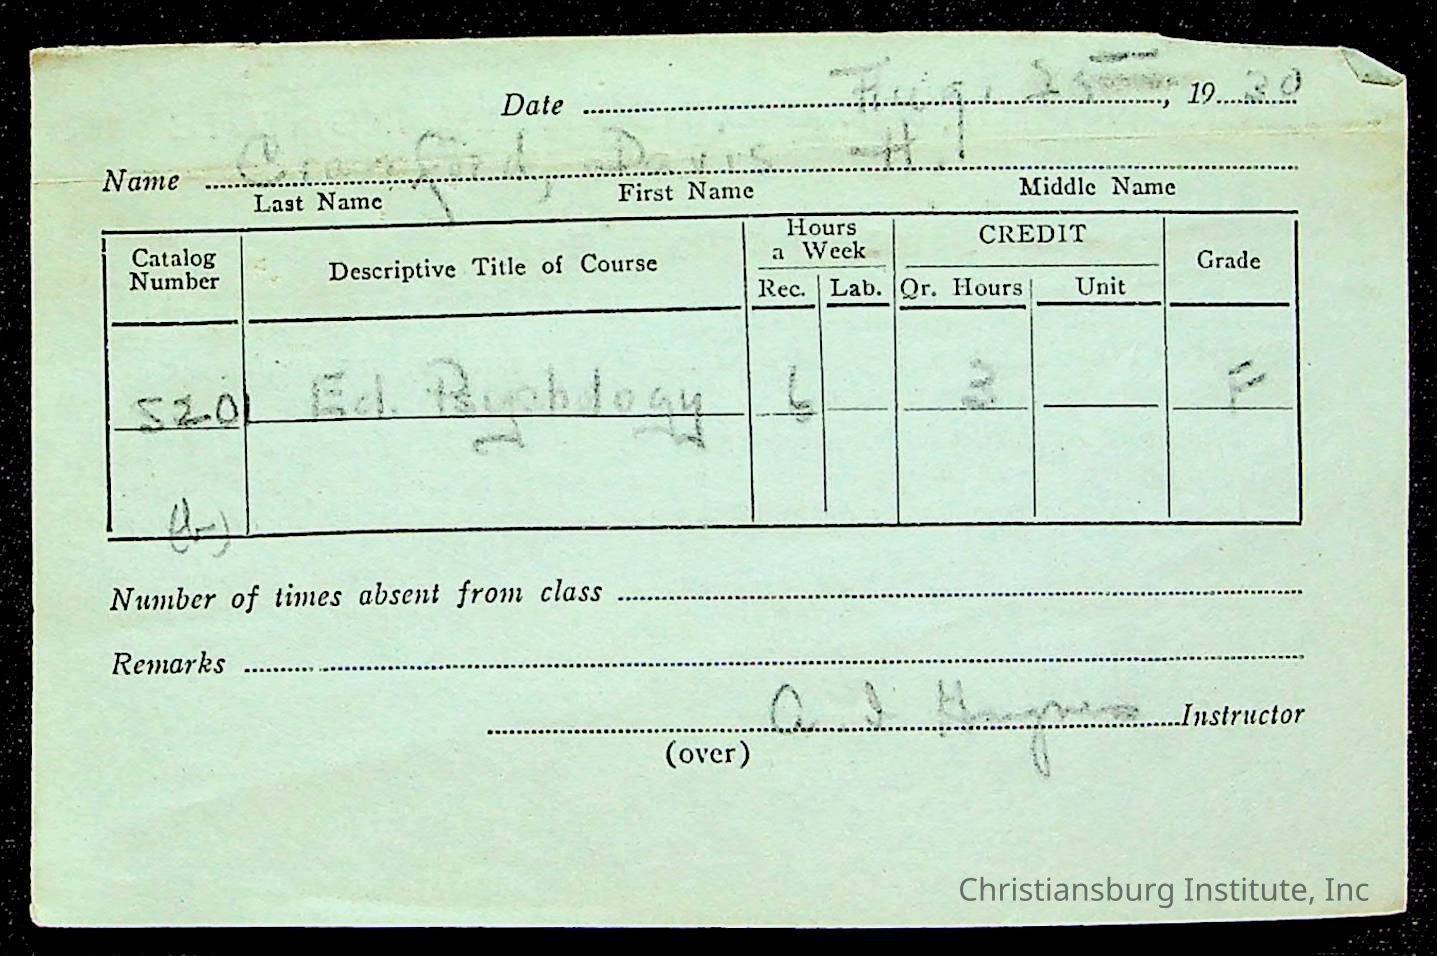 Date Aug. 25, 1930
Name Crawford, Davis H.
Last Name First Name Middle Name
Catalog Number Descriptive Title of Course Hours a Week Rec. Lab. CREDIT Qr. Hours Unit Grade
S20 Ed. Psychology 6 3 F
(b)
Number of times absent from class
Remarks
A. I. Instructor
(over)
Christiansburg Institute, Inc